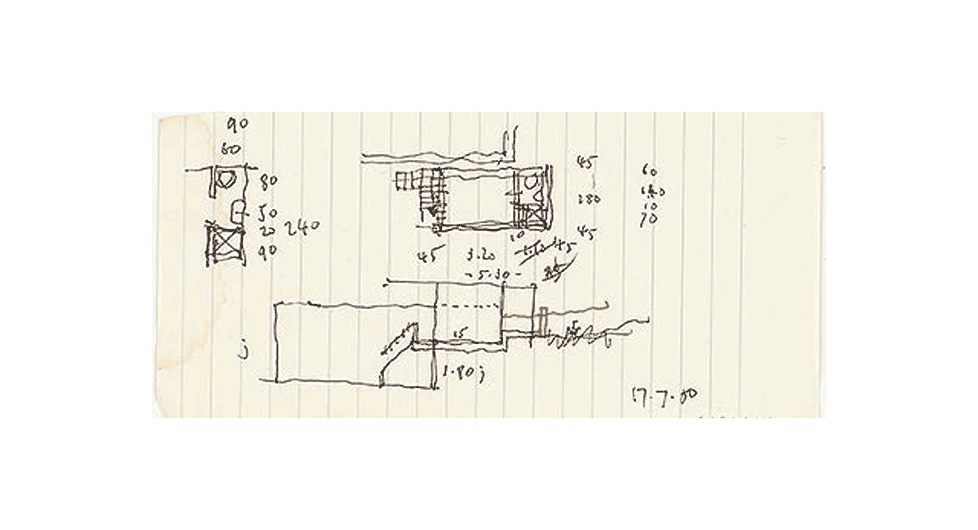 90
60
80
50
20 240
90
45
280
45
60
10
70
10
45
3.20
45
-5.30-
15
1.80
17.7.80